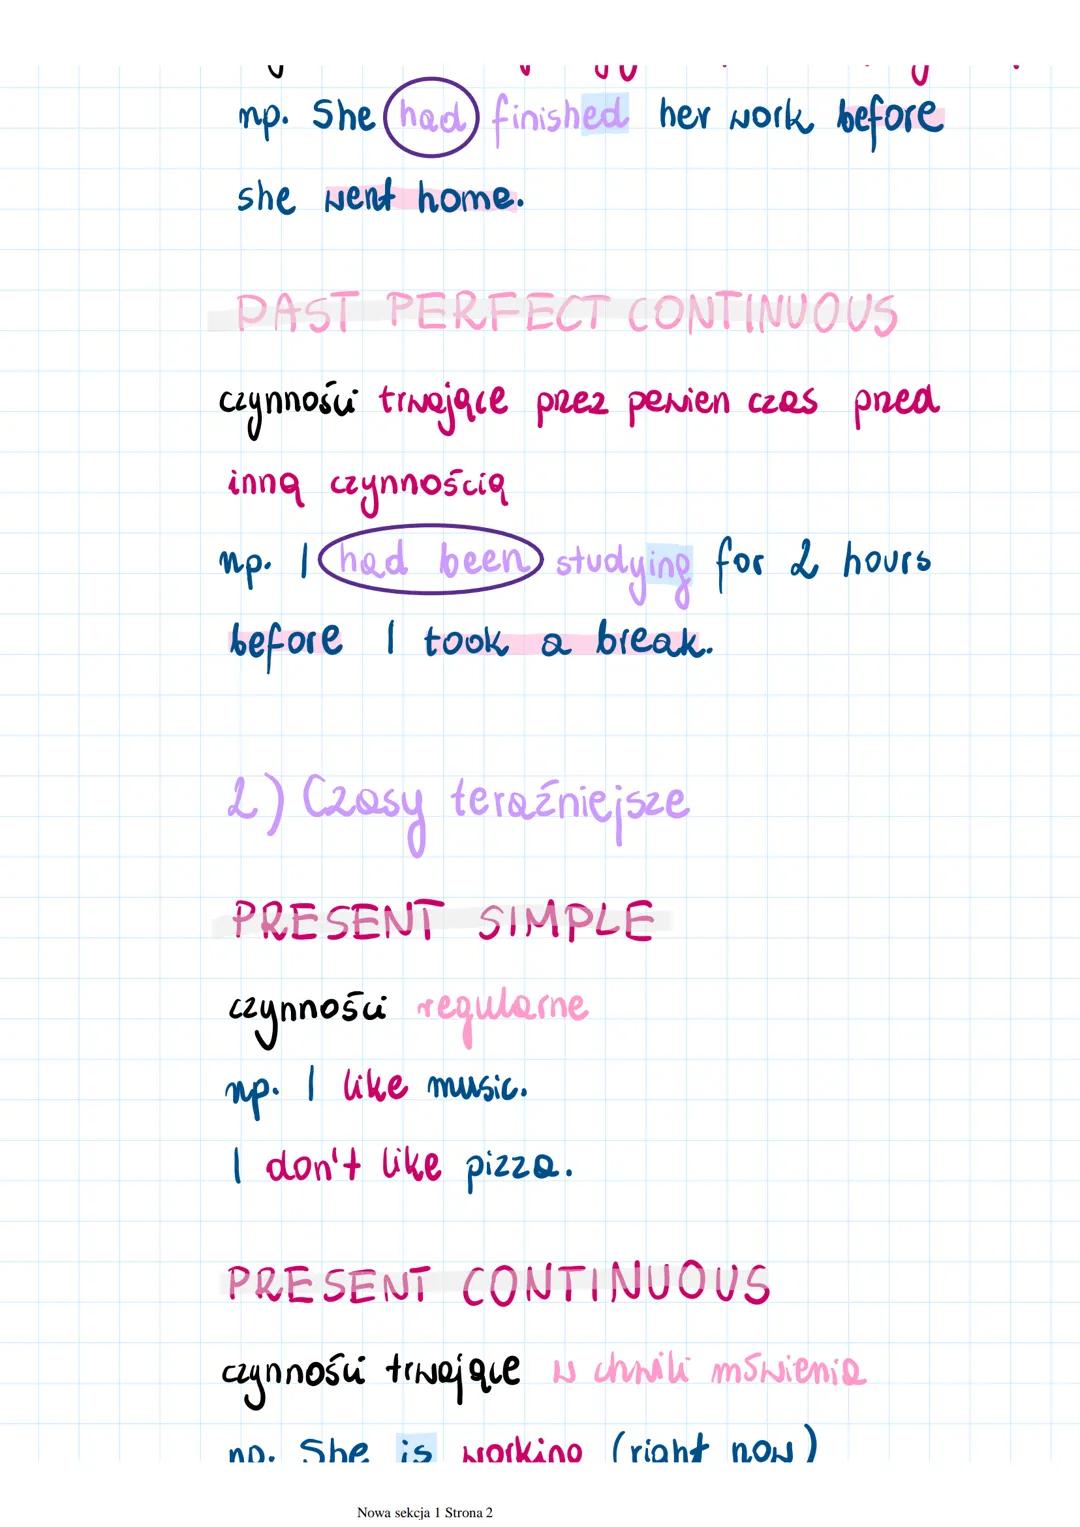 np. She had finished her work before
she went home.
PAST PERFECT CONTINUOUS
czynności trwające przez pewien czas przed
inną czynnością
np. I had been studying for 2 hours
before I took a break.
2) Czasy teraźniejsze
PRESENT SIMPLE
czynności regularne
np. I like music.
I don't like pizza.
PRESENT CONTINUOUS
czynności trwające w chwili mówienia
np. She is working (right now)
Nowa sekcja 1 Strona 2